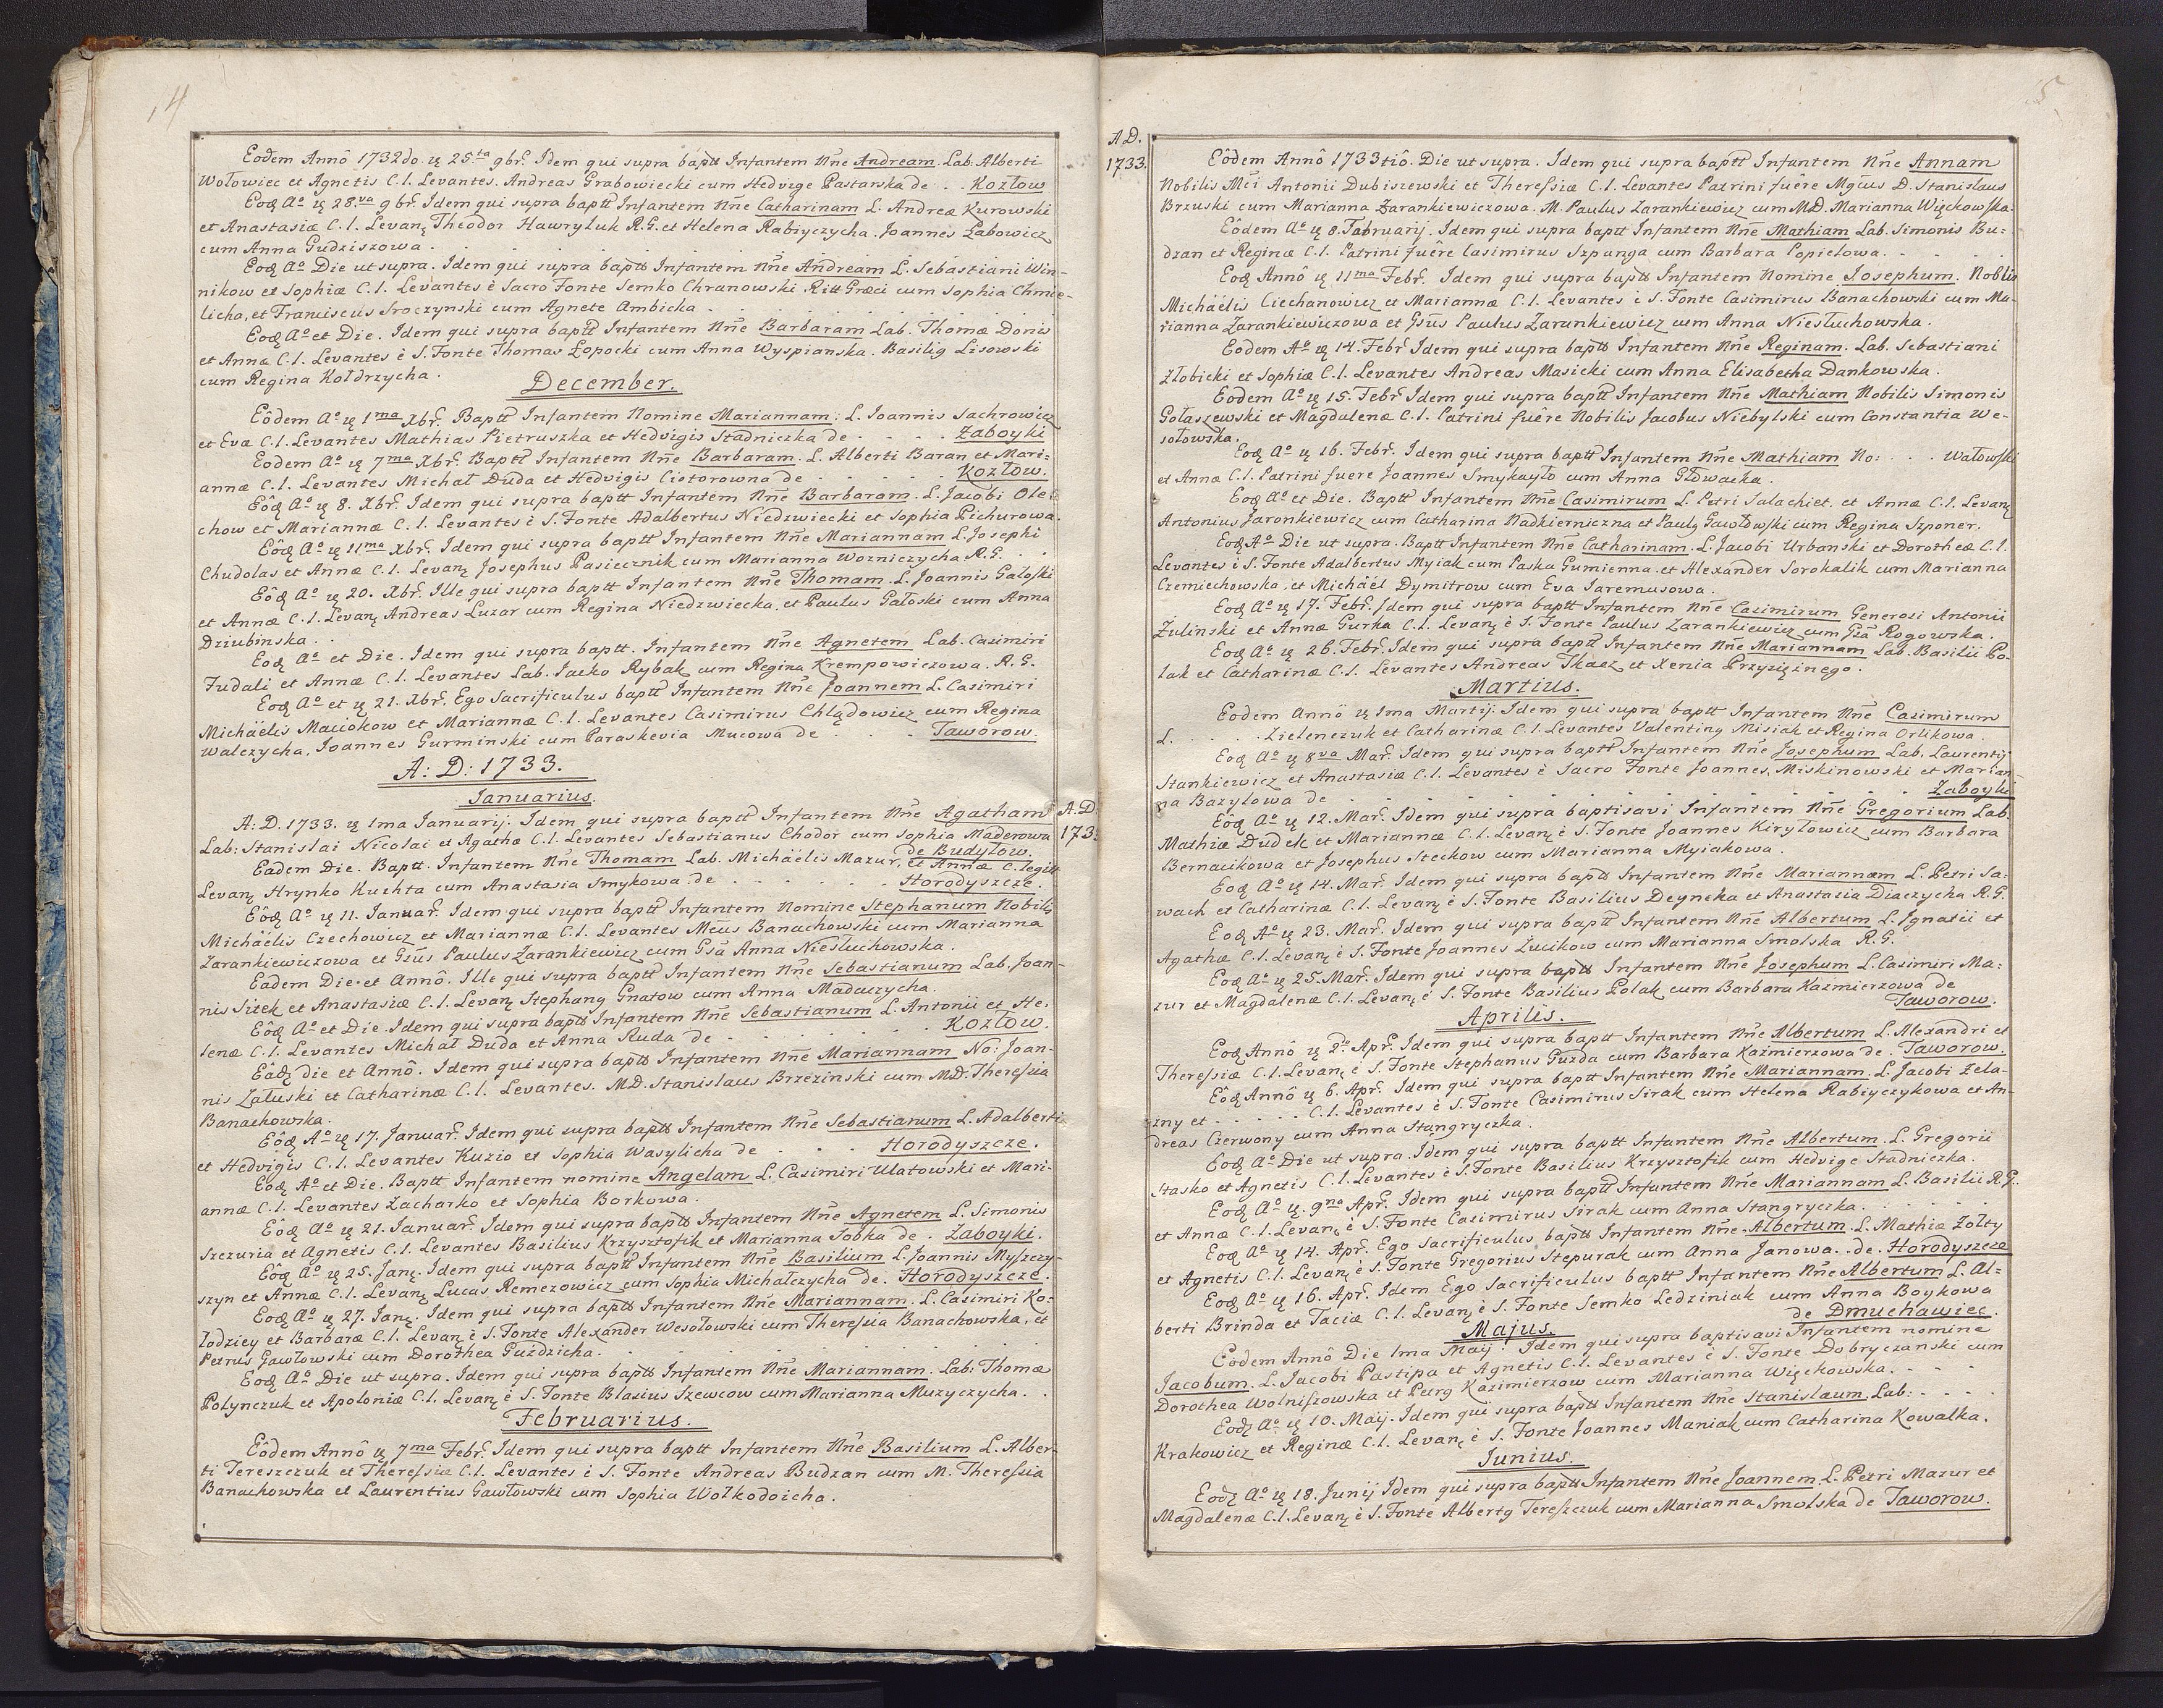 14
Eodem Annô 1732do. ię 25.ta 9br̃. Idem qui supra baptt Infantem Nñe Andream. Lab. Alberti
Wołowiec et Agnetis C.l. Levantes. Andreas Grabowiecki cum Hedvige Pastarska de . . Kozłow
Eodę Ao ię 28.va 9br̃. Idem qui supra baptt Infantem Nñe Catharinam L. Andreæ Kurowski
et Anastasiæ C.l. Levanę Theodor Hawryluk R.G. et Helena Rabiyczycha. Joannes Łabowicz
cum Anna Gudziszowa .
Eodę Ao Die ut supra. Idem qui supra baptt Infantem Nñe Andream L. Sebastiani Win-
nikow et Sophiæ C.l. Levantes è Sacro Fonte Semko Chranowski Ritt Græci cum Sophia Chmie-
licha, et Franciscus Sroczynski cum Agnete Ambicka .
Eodę Ao et Die. Idem qui supra baptt Infantem Nñe Barbaram Lab. Thomæ Donis
et Annæ C.l. Levantes è S. Fonte Thomas Łopocki cum Anna Wyspianska. Basilię Lisowski
cum Regina Kołdrzycha.
December.
Eôdem Ao ię 1ma Xbr̃. Baptt Infantem Nomine Mariannam. L. Joannis Sachrowicz
et Evæ C.l. Levantes Mathias Pietruszka et Hedvigis Stadniczka de . . . . Zaboyki
Eodem Ao ię 7ma Xbr̃. Baptt Infantem Nñe Barbaram. L. Alberti Baran et Mari=
annæ C.l. Levantes Michał Duda et Hedvigis Ciotorowna de . . . . Kozłow.
Eôdę Ao ię 8. Xbr̃. Idem qui supra baptt Infantem Nñe Barbaram. L. Jacobi Ole-
chow et Mariannæ C.l. Levantes è S. Fonte Adalbertus Niedzwiecki et Sophia Pichurowa.
Eôdę Ao ię 11ma Xbr̃. Idem qui supra baptt Infantem Nñe Mariannam L. Josephi
Chudolas et Annæ C.l. Levanę Josephus Pasiecznik cum Marianna Wozniczycha R.G. . .
Eôdę Ao ię 20. Xbr̃. Ille qui supra baptt Infantem Nñe Thomam. L. Joannis Gałoski
et Annæ C.l. Levanę Andreas Luzar cum Regina Niedzwiecka, et Paulus Gałoski cum Anna
Dziubinska .
Eodę Ao et Die. Idem qui supra baptt. Infantem Nñe Agnetem Lab. Casimiri
Fudali et Annæ C.l. Levantes Lab. Jacko Rybak cum Regina Krempowiczowa. R.G.
Eodę Ao et ię 21. Xbr̃. Ego Sacrificulus baptt Infantem Nñe Joannem L. Casimiri
Michäelis Maciokow et Mariannæ C.l. Levantes Casimirus Chlądowicz cum Regina
Walczycha. Joannes Gurminski cum Paraskevia Mucowa de . . . Taworow.
A: D: 1733.
Januarius.
A: D. 1733. ię 1ma Januarij. Idem qui supra baptt Infantem Nñe Agatham
Lab: Stanislai Nicolai et Agathæ C.l. Levantes Sebastianus Chodor cum Sophia Maderowa
A.D.
173
de Budyłow.
Eadem Die. Baptt. Infantem Nñe Thomam Lab. Michäelis Mazur, et Annæ C. legitt
Levanę Hrynko Kuchta cum Anastasia Smykowa de . . . . . . Horodyszcze.
Eôdę Ao ię 11. Januar̃. Idem qui supra baptt Infantem Nomine Stephanum Nobilis
Michäelis Czechowicz et Mariannæ C.l. Levantes Mcus Banachowski cum Marianna
Zarankiewiczowa et Gsũs Paulus Zarankiewicz cum Gsã Anna Niesłuchowska.
Eadem Die et Annô. Ille qui supra baptt Infantem Nñe Sebastianum Lab. Joan-
nis Sitek et Anastasiæ C.l. Levanę Stephanę Gnatow cum Anna Maduczycha.
Eôdę Ao et Die. Idem qui supra baptt Infantem Nñe Sebastianum L. Antonii et He-
lenæ C.l. Levantes Michał Duda et Anna Ruda de . . . . . . Kozłow.
Eâdę die et Annô. Idem qui supra baptt Infantem Nñe Mariannam No: Joan-
nis Zaluski et Catharinæ C.l. Levantes. MD. Stanislaus Brzezinski cum MD. Theressia
Banachowska.
Eôdę Ao ię 17. Januar̃. Idem qui supra baptt Infantem Nñe Sebastianum L. Adalberti
et Hedvigis C.l. Levantes Kuzio et Sophia Wasylicha de . . . Horodyszcze.
Eodę Ao et Die. Baptt Infantem nomine Angelam L. Casimiri Ulatowski et Mari-
annæ C.l. Levantes Zacharko et Sophia Borkowa.
Eôdę Ao ię 21. Januar̃. Idem qui supra baptt Infantem Nñe Agnetem L. Simonis
Szczuria et Agnetis C.l. Levantes Basilius Krzysztofik et Marianna Sobka de . Zaboyki.
Eôdę Ao ię 25. Janę. Idem qui supra baptt Infantem Nñe Basilium L. Joannis Myszczy-
szyn et Annæ C.l. Levanę Lucas Remezowicz cum Sophia Michalczycha de. Horodyszcze.
Eodę Ao ię 27. Janę. Idem qui supra baptt Infantem Nñe Mariannam. L. Casimiri Ko-
łodziey et Barbaræ C.l. Levanę è S. Fonte Alexander Wesołowski cum Theressia Banachowska, et
Petrus Gawłowski cum Dorothea Puzdzicha.
Eodę Ao Die ut supra. Idem qui supra baptt Infantem Nñe Mariannam. Lab: Thomæ
Polynczuk et Apoloniæ C.l. Levanę è S. Fonte Blasius Szewcow cum Marianna Muzyczycha. .
Februarius.
Eôdem Annô ię 7ma Febr̃. Idem qui supra baptt Infantem Nñe Basilium L. Alber-
ti Tereszczuk et Theressiæ C.l. Levantes è S. Fonte Andreas Budzan cum M. Theressia
Banachowska et Laurentius Gawłowski cum Sophia Wołkodoicha.
5
A.D.
1733.
Eôdem Annô 1733tiô. Die ut supra. Idem qui supra baptt Infantem Nñe Annam
Nobilis Mci Antonii Dubiszewski et Theressiæ C.l. Levantes Patrini fuêre Mgcus D. Stanislaus
Brzuski cum Marianna Zarankiewiczowa. M. Paulus Zarankiewicz cum MD. Marianna Więckowska.
Eôdem Ao ię 8. Februarij. Idem qui supra baptt Infantem Nñe Mathiam Lab. Simonis Bu=
dzan et Reginæ C.l. Patrini fuêre Casimirus Szpunga cum Barbara Popielowa. . . .
Eodę Annô ię 11ma Febr̃. Idem qui supra baptt Infantem Nomine Josephum. Noblis
Michäelis Ciechanowicz et Mariannæ C.l. Levantes è S. Fonte Casimirus Banachowski cum Ma-
rianna Zarankiewiczowa et Gsũs Paulus Zarankiewicz cum Anna Niesłuchowska.
Eodem Ao ię 14. Febr̃ Idem qui supra baptt Infantem Nñe Reginam. Lab. Sebastiani
Złobicki et Sophiæ C.l. Levantes Andreas Masicki cum Anna Elisabetha Dankowska.
Eodem Ao ię 15. Febr̃ Idem qui supra baptt Infantem Nñe Mathiam Nobilis Simonis
Gołaszewski et Magdalenæ C.l. Patrini fuêre Nobilis Jacobus Niebylski cum Constantia We-
sołowska.
Eodę Ao ię 16. Febr̃. Idem qui supra baptt Infantem Nñe Mathiam No: . . . Watowski
et Annæ C.l. Patrini fuere Joannes Smykayło cum Anna Głowacka.
Eodę Ao et Die. Baptt Infantem Nñe Casimirum L. Petri Salachiet. et Annæ C.l. Levanę
Antonius Jaronkiewicz cum Catharina Nadkierniczna et Paulę Gawłowski cum Regina Szponer.
Eodę Ao Die ut supra. Baptt Infantem Nñe Catharinam. L. Jacobi Urbanski et Dorotheæ C.l.
Levantes è S. Fonte Adalbertus Myiak cum Paska Gumienna. et Alexander Sorokalik cum Marianna
Czemiechowska, et Michäel Dymitrow cum Eva Jaremusowa.
Eodę Ao ię 17. Febr̃. Idem qui supra baptt Infantem Nñe Casimirum Generosi Antonii
Żulinski et Annæ Gurka C.l. Levanę è S. Fonte Paulus Zarankiewicz cum Gsã Rogowska.
Eodę Ao ię 26. Febr̃. Idem qui supra baptt Infantem Nñe Mariannam Lab. Basilii Po-
lak et Catharinæ C.l. Levantes Andreas Tkacz et Xenia Przysiężnego.
Martius.
Eodem Annô ię 1ma Martij. Idem qui supra baptt Infantem Nñe Casimirum
L. . . . . Zielenczuk et Catharinæ C.l. Levantes Valentinę Misiak et Regina Orlikowa.
Eodę Ao ię 8va Mar̃. Idem qui supra baptt Infantem Nñe Josephum Lab. Laurentij
Stankiewicz et Anastasiæ C.l. Levantes è Sacro Fonte Joannes Miskinowski et Marian-
na Bazylowa de . . . . . . . . . . . Zaboyki
Eôdę Ao ię 12. Mar̃. Idem qui supra baptisavi Infantem Nñe Gregorium Lab.
Mathiæ Dudek et Mariannæ C.l. Levanę è S. Fonte Joannes Kiryłowicz cum Barbara
Bernacikowa et Josephus Steckow cum Marianna Myiakowa.
Eodę Ao ię 14. Mar̃. Idem qui supra baptt Infantem Nñe Mariannam L. Petri Sa-
wach et Catharinæ C.l. Levanę è S. Fonte Basilius Deyneka et Anastasia Diaczycha R.G.
Eodę Ao ię 23. Mar̃. Idem qui supra baptt Infantem Nñe Albertum L. Ignatii et
Agathæ C.l. Levanę è S. Fonte Joannes Zucikow cum Marianna Smolska R.G.
Eodę Ao ię 25. Mar̃. Idem qui supra baptt Infantem Nñe Josephum L. Casimiri Ma=
zur et Magdalenæ C.l. Levanę è S. Fonte Basilius Polak cum Barbara Kazmierzowa de
Taworow.
Aprilis.
Eodę Annô ię 2o Apr̃. Idem qui supra baptt Infantem Nñe Albertum L. Alexandri et
Theressiæ C.l. Levanę è S. Fonte Stephanus Puzda cum Barbara Kazimierzowa de. Taworow.
Eôdę Annô ię 6. Apr̃. Idem qui supra baptt Infantem Nñe Mariannam. L. Jacobi Żela-
zny et . . . . . C.l. Levantes è S. Fonte Casimirus Sirak cum Helena Rabiyczykowa et An-
dreas Czerwony cum Anna Stangryczka.
Eodę Ao Die ut supra. Idem qui supra baptt Infantem Nñe Albertum. L. Gregorii
Stasko et Agnetis C.l. Levantes è S. Fonte Basilius Krzysztofik cum Hedvige Stadniczka.
Eodę Ao ię 9na Apr̃. Idem qui supra baptt Infantem Nñe Mariannam L. Basilii R.G.
et Annæ C.l. Levanę è S. Fonte Casimirus Sirak cum Anna Stangryczka. . . . .
Eodę Ao ię 14. Apr̃. Ego Sacrificulus, baptt Infantem Nñe Albertum. L. Mathiæ Zołty
et Agnetis C.l. Levanę è S. Fonte Gregorius Stepurak cum Anna Janowa. de. Horodyszcze
Eodę Ao ię 16. Apr̃. Idem Ego Sacrificulus baptt Infantem Nñe Albertum L. Al=
berti Brinda et Taciæ C.l. Levanę è S. Fonte Semko Ledziniak cum Anna Boykowa
de Dmuchawiec.
Majus.
Eodem Annô Die 1ma Maij. Idem qui supra baptisavi Infantem nomine
Jacobum. L. Jacobi Pastipa et Agnetis C.l. Levantes è S. Fonte Dobryczanski cum
Dorothea Wolniszowska et Petrę Kazimierzow cum Marianna Więckowska. . . .
Eodę Ao ię 10. Maij. Idem qui supra baptt Infantem Nñe Stanislaum. Lab: . . . .
Krakowicz et Reginæ C.l. Levanę è S. Fonte Joannes Maniak cum Catharina Kowalka.
Junius.
Eodę Ao ię 18. Junij Idem qui supra baptt Infantem Nñe Joannem. L. Petri Mazur et
Magdalenæ C.l. Levanę è S. Fonte Albertę Tereszczuk cum Marianna Smolska de Taworow.